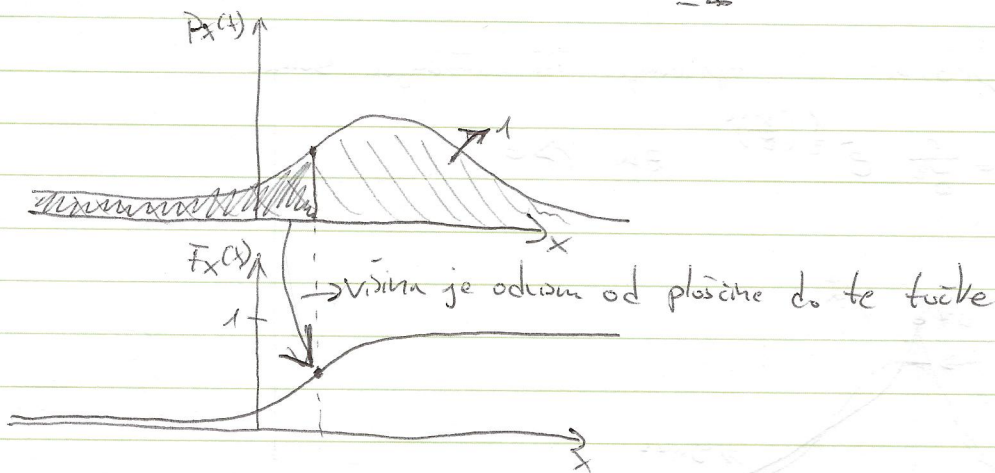 -∞
Px(t)
1
x
Fx(x)
→ višina je odvisna od ploščine do te točke
1
x